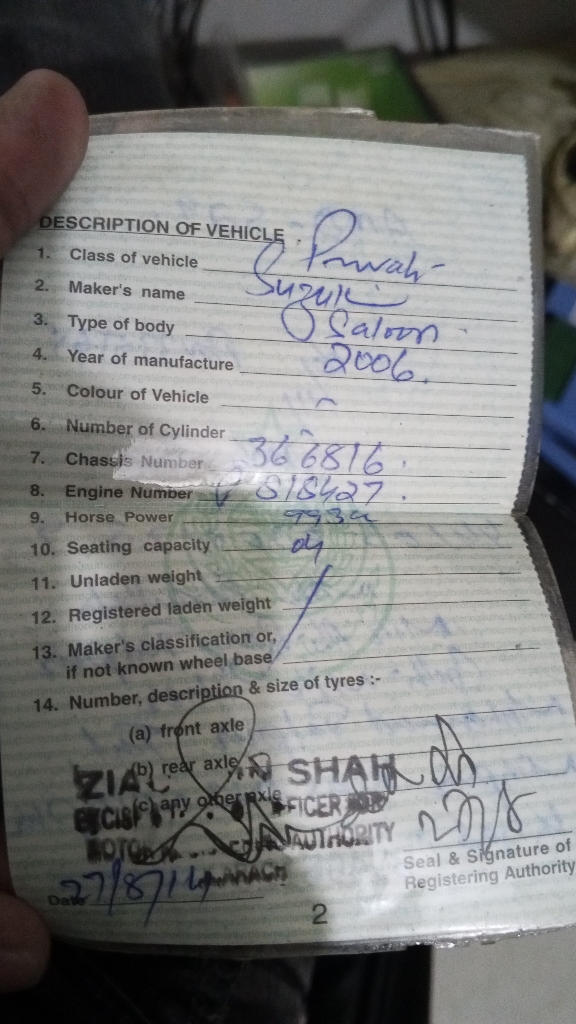 DESCRIPTION OF VEHICLE
1. Class of vehicle Private
2. Maker's name Suzuki
3. Type of body Saloon
4. Year of manufacture 2006.
5. Colour of Vehicle
6. Number of Cylinder
7. Chassis Number 366816
8. Engine Number 818427
9. Horse Power
10. Seating capacity 04
11. Unladen weight
12. Registered laden weight
13. Maker's classification or,
if not known wheel base
14. Number, description & size of tyres :-
(a) front axle
(b) rear axle
(c) any other axle
SHAH
AUTHORITY
Seal & Signature of
Registering Authority
Date 27/8/14
2